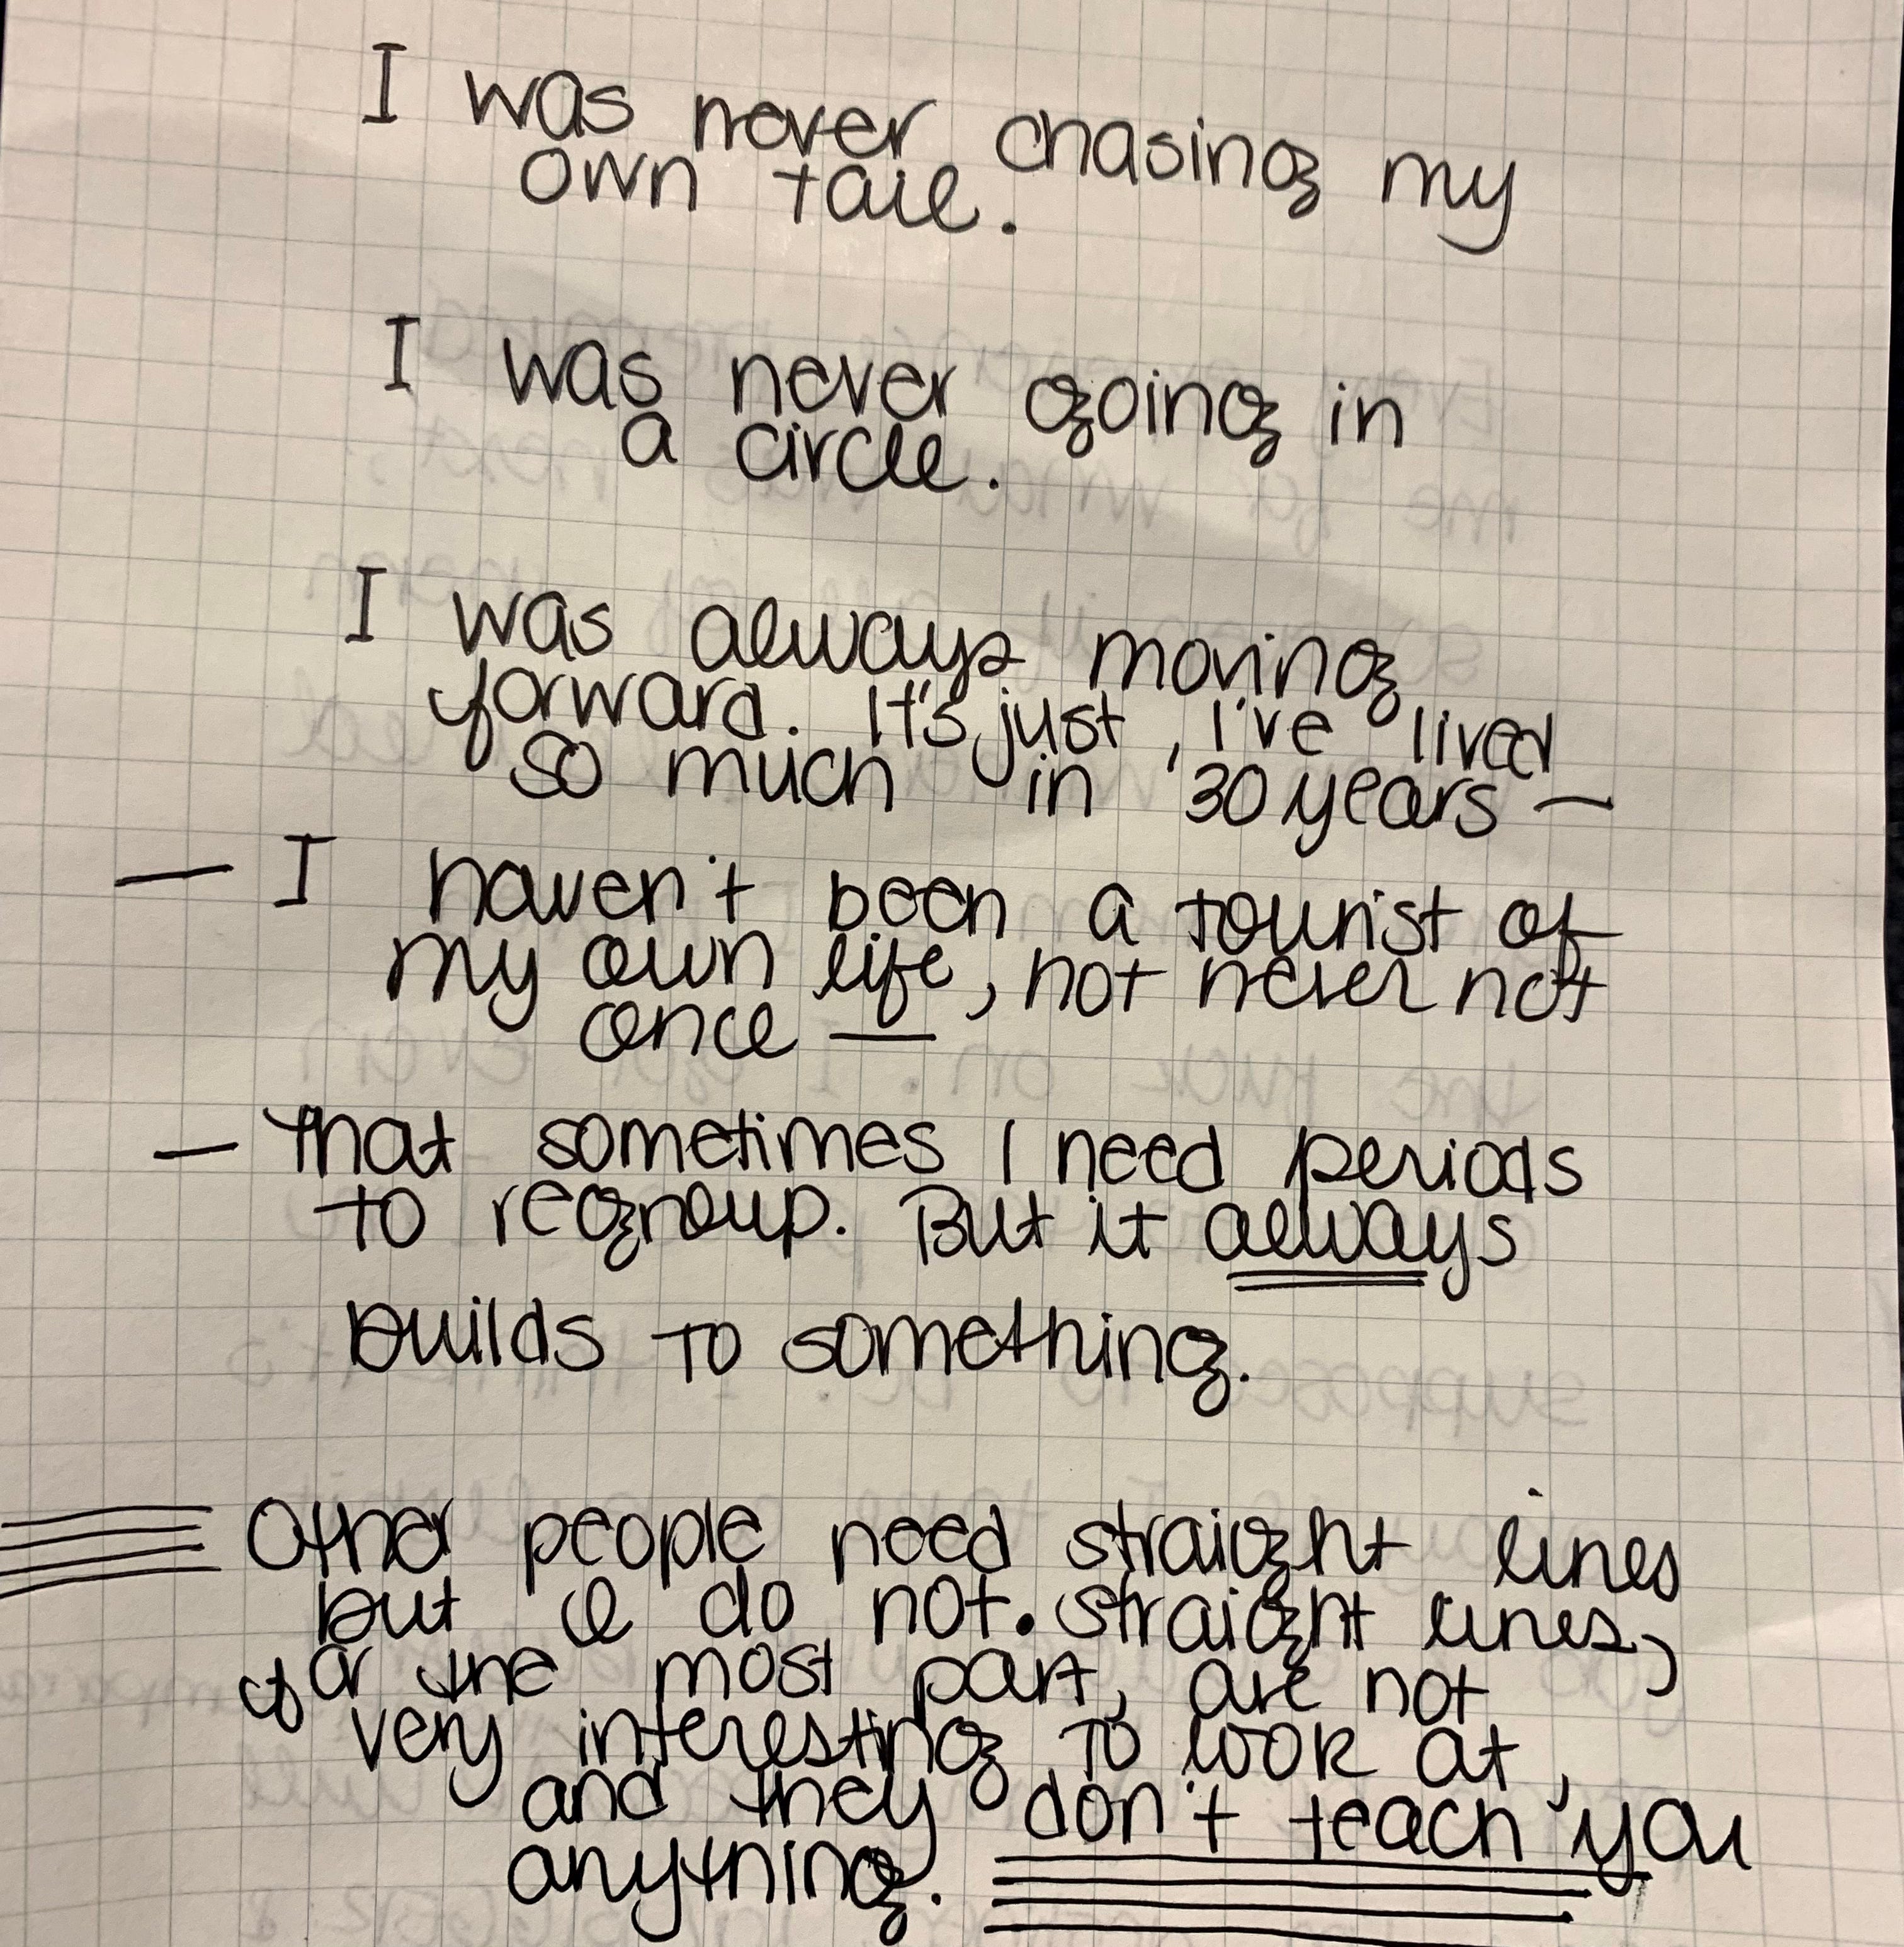 I was never chasing my
own tail.
I was never going in
a circle.
I was always moving
forward. It's just, I've lived
so much in 30 years —
— I haven't been a tourist of
my own life, not never not
once —
— that sometimes I need periods
to regroup. But it always
builds to something.
Other people need straight lines
but I do not. Straight lines,
for the most part, are not
very interesting to look at,
and they don't teach you
anything.